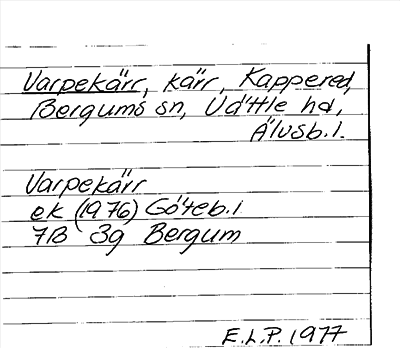 Varpekärr, kärr, Kappered,
Bergums sn, Vättle hd,
Älvsb. l.
Varpekärr
ek (1976) Göteb. l
7B 3g Bergum
E.L.P. 1977